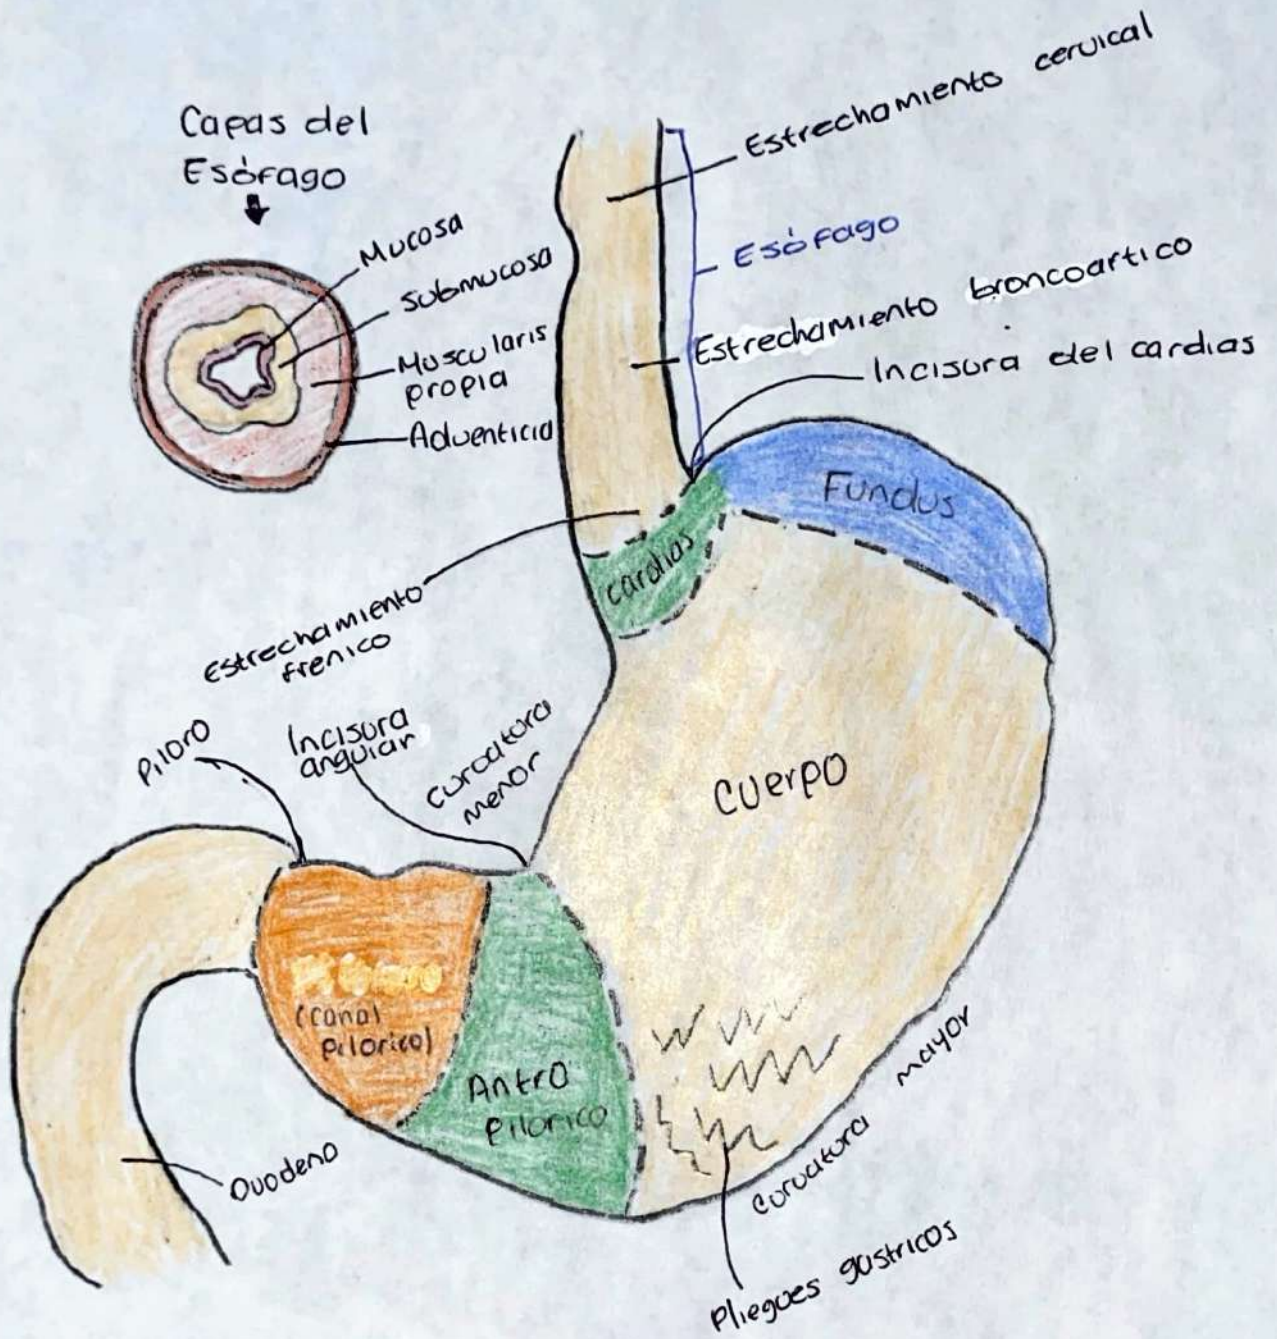 Capas del
Esófago
Mucosa
submucosa
Muscularis
propia
Adventicia
Estrechamiento cervical
Esófago
Estrechamiento broncoartico
Incisura del cardias
Fundus
cardias
Estrechamiento
frenico
Piloro
Incisura
angular
curvatura
menor
cuerpo
(canal
pilorico)
Antro
pilorico
Duodeno
curvatura mayor
Pliegues gástricos